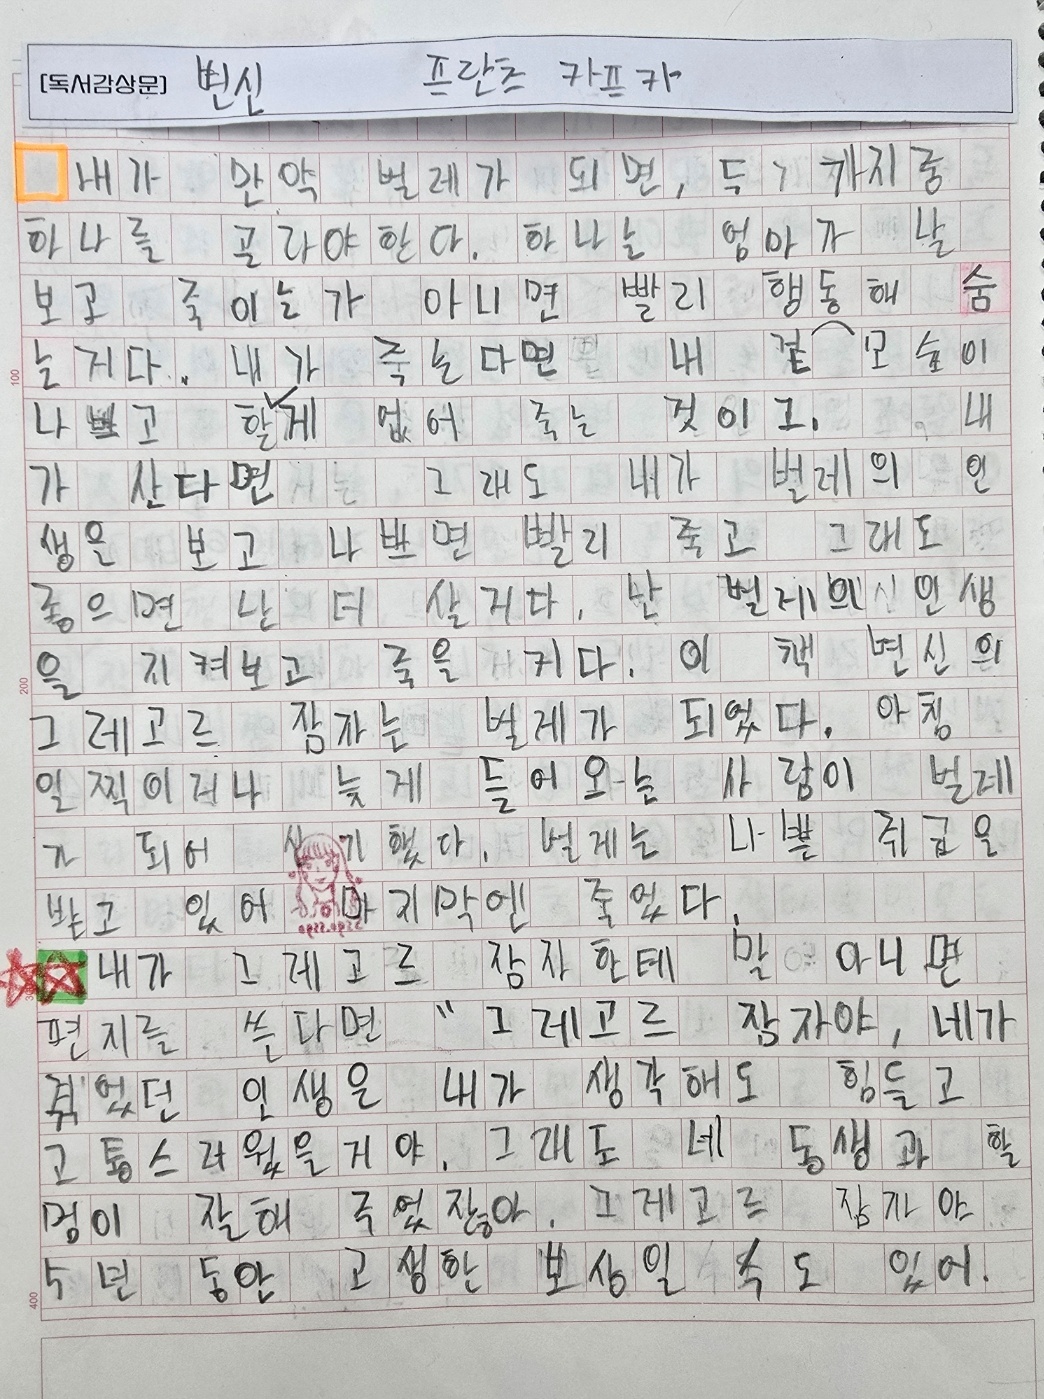 [독서감상문] 변신 프란츠 카프카
내가 만약 벌레가 되면, 두 가지 중
하나를 골라야 한다. 하나는 엄마가 날
보고 죽이는가 아니면 빨리 행동해 숨
는 거다. 내가 죽는다면 내 겉 모습이
나쁘고 할게 없어 죽는 것이고. 내
가 산다면 그래도 내가 벌레의 인
생은 보고 나쁘면 빨리 죽고 그래도
좋으면 난 더 살거다. 난 벌레의 인생
을 지켜보고 죽을 거다. 이 책 변신의
그레고르 잠자는 벌레가 되었다. 아침
일찍이거나 늦게 들어오는 사람이 벌레
가 되어 신기했다. 벌게는 나쁜 취급을
받고 있어 마지막엔 죽었다.
내가 그레고르 잠자한테 말 아니면
편지를 쓴다면 "그레고르 잠자야, 네가
겪었던 인생은 내가 생각해도 힘들고
고통스러웠을거야. 그래도 네 동생과 할
멈이 잘해 주었잖아. 그레고르 잠자야
수년 동안 고생한 보상일 수도 있어.
100
200
400